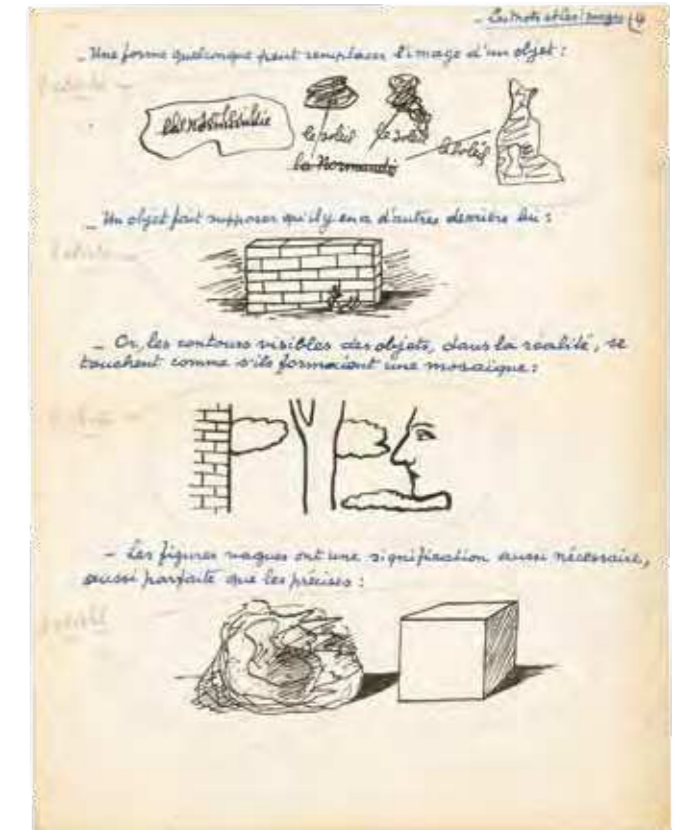 Les mots et les images (4
_ Une forme quelconque peut remplacer l'image d'un objet :
le soleil
le soleil
le soleil
la Normandie
_ Un objet fait supposer qu'il y en a d'autres derrière lui :
_ Or, les contours visibles des objets, dans la réalité, se
touchent comme s'ils formaient une mosaïque :
_ Les figures vagues ont une signification aussi nécessaire,
aussi parfaite que les précises :